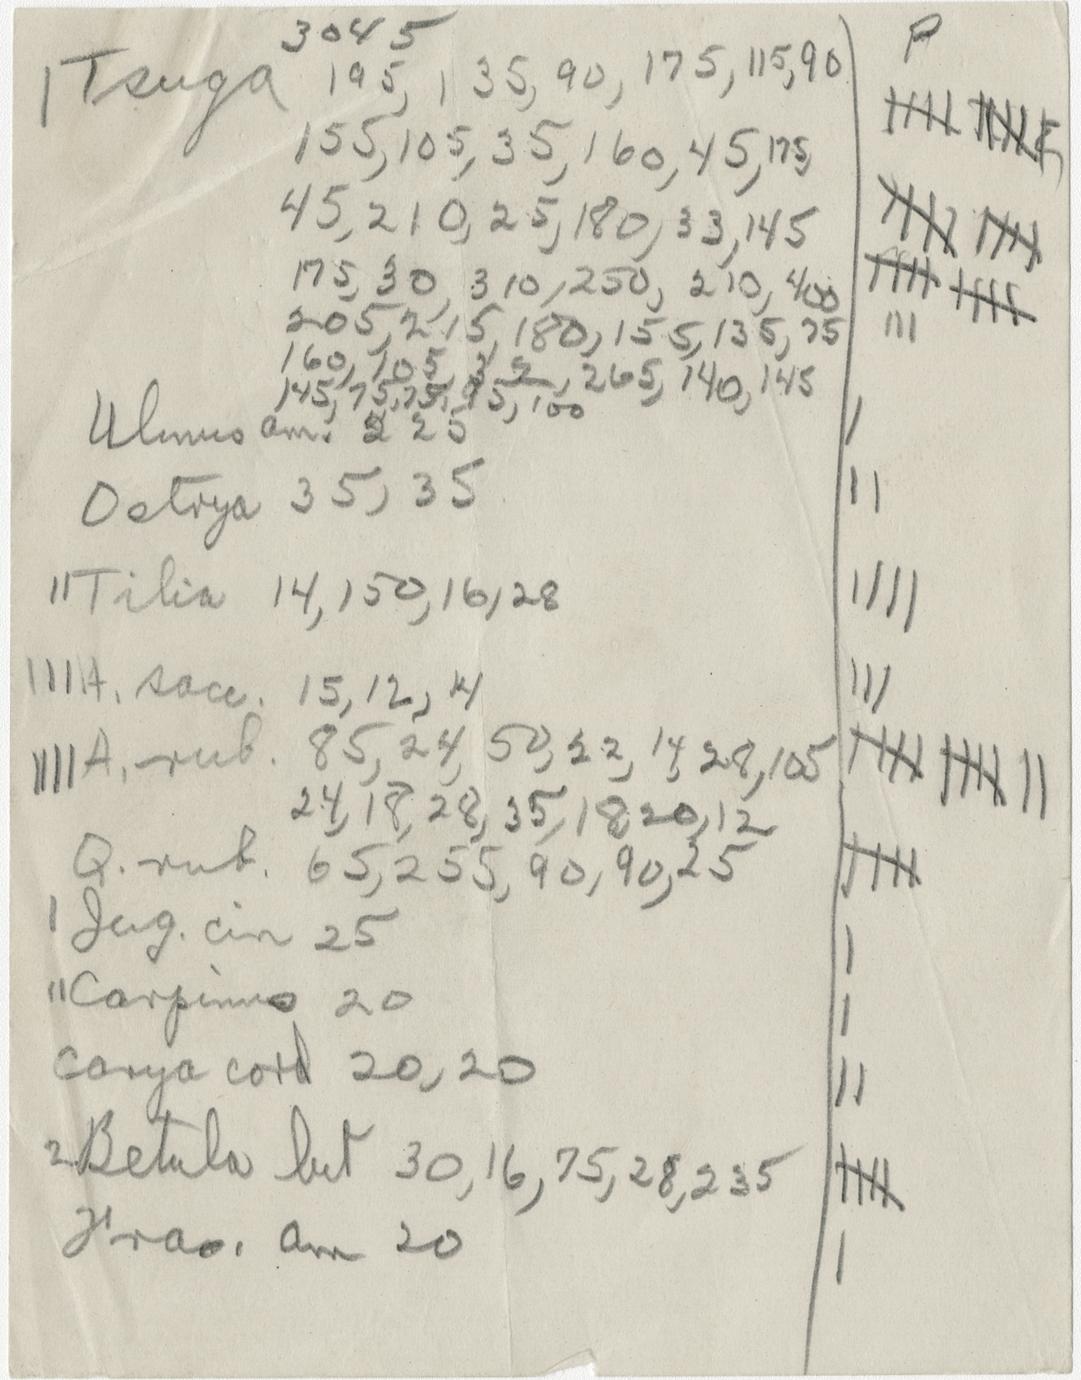 3045 P
| Tsuga 195, 135, 90, 175, 115, 90
155, 105, 35, 160, 45, 175,
45, 210, 25, 180, 33, 145
175, 30, 310, 250, 210, 400
205, 215, 180, 155, 135, 75 |||
160, 105, 32, 265, 140, 145
145, 75, 75, 95, 100
Ulmus am. 225 |
Ostrya 35, 35 ||
|| Tilia 14, 150, 16, 28 ||||
|||| A. sacc. 15, 12, 14 |||
|||| A. rub. 85, 24, 50, 22, 14, 28, 105
24, 18, 28, 35, 18, 20, 12
Q. rub. 65, 255, 90, 90, 25
| Jug. cin 25 |
|| Carpinus 20 |
Carya cord 20, 20 ||
2 Betula lut 30, 16, 75, 28, 235
Frax. am 20 |